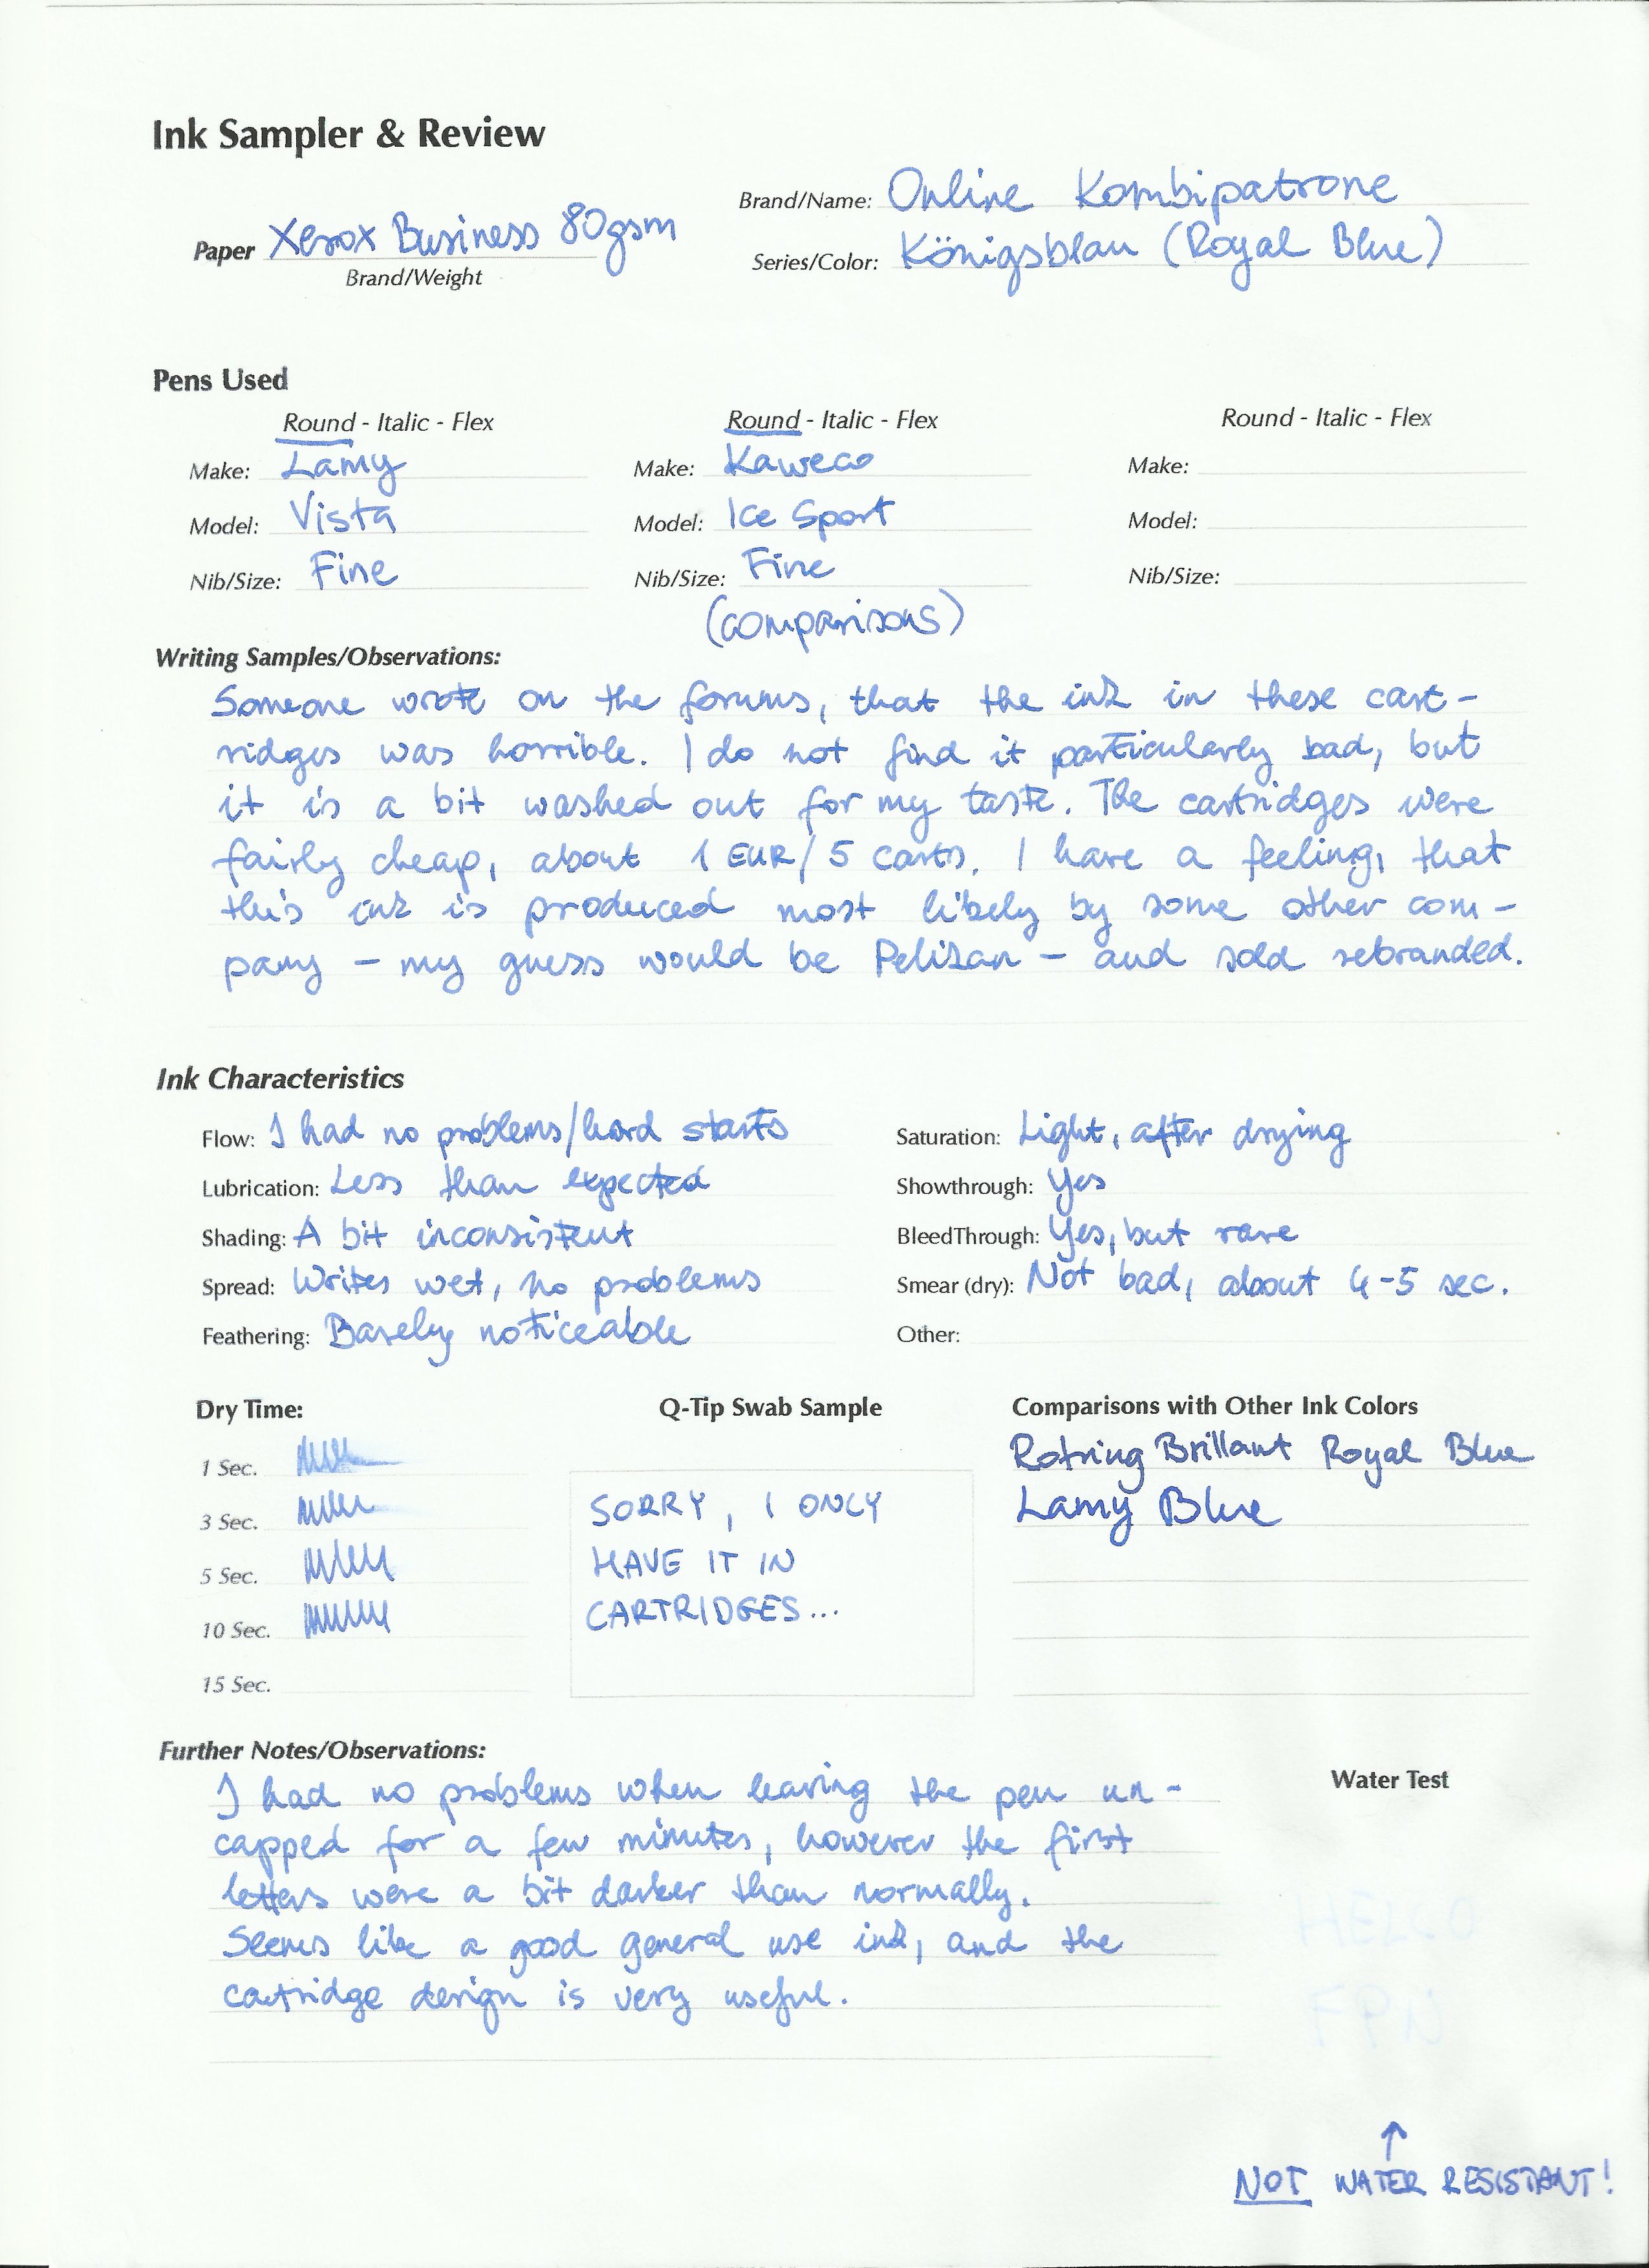 Ink Sampler & Review
Brand/Name: Online Kombipatrone
Paper Xerox Business 80gsm
Brand/Weight
Series/Color: Königsblau (Royal Blue)
Pens Used
Round - Italic - Flex Round - Italic - Flex Round - Italic - Flex
Make: Lamy Make: Kaweco Make:
Model: Vista Model: Ice Sport Model:
Nib/Size: Fine Nib/Size: Fine Nib/Size:
(comparisons)
Writing Samples/Observations:
Someone wrote on the forums, that the ink in these cart-
ridges was horrible. I do not find it particularly bad, but
it is a bit washed out for my taste. The cartridges were
fairly cheap, about 1 EUR/5 carts. I have a feeling, that
this ink is produced most likely by some other com-
pany - my guess would be Pelikan - and sold rebranded.
Ink Characteristics
Flow: I had no problems/hard starts Saturation: Light, after drying
Lubrication: Less than expected Showthrough: Yes
Shading: A bit inconsistent BleedThrough: Yes, but rare
Spread: Writes wet, no problems Smear (dry): Not bad, about 4-5 sec.
Feathering: Barely noticeable Other:
Dry Time: Q-Tip Swab Sample Comparisons with Other Ink Colors
1 Sec. Rotring Brillant Royal Blue
3 Sec. SORRY, I ONLY Lamy Blue
5 Sec. HAVE IT IN
10 Sec. CARTRIDGES...
15 Sec.
Further Notes/Observations:
I had no problems when leaving the pen un-
capped for a few minutes, however the first
letters were a bit darker than normally.
Seems like a good general use ink, and the
catridge design is very useful.
Water Test
HELLO
FPN
↑
NOT WATER RESISTANT!